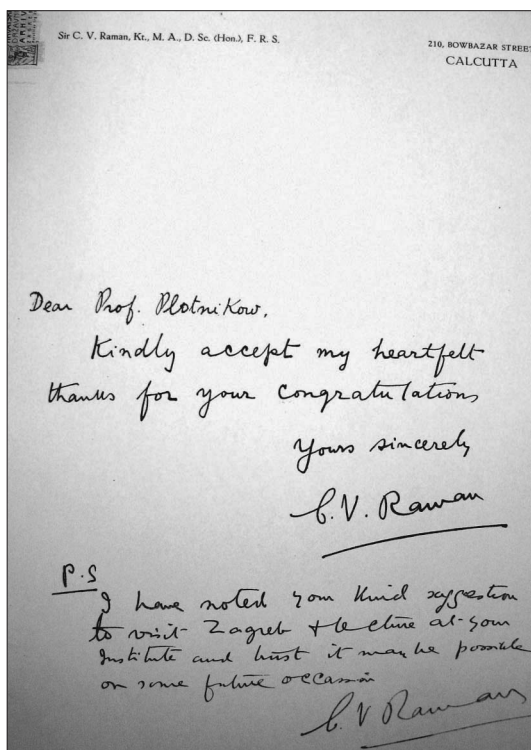 Sir C. V. Raman, Kt., M. A., D. Sc. (Hon.), F. R. S.
210, BOWBAZAR STREET
CALCUTTA
Dear Prof. Plotnikow,
Kindly accept my heartfelt
thanks for your congratulations
Yours sincerely
C. V. Raman
P.S
I have noted your kind suggestion
to visit Zagreb & lecture at your
Institute and trust it may be possible
on some future occassion
C. V Raman